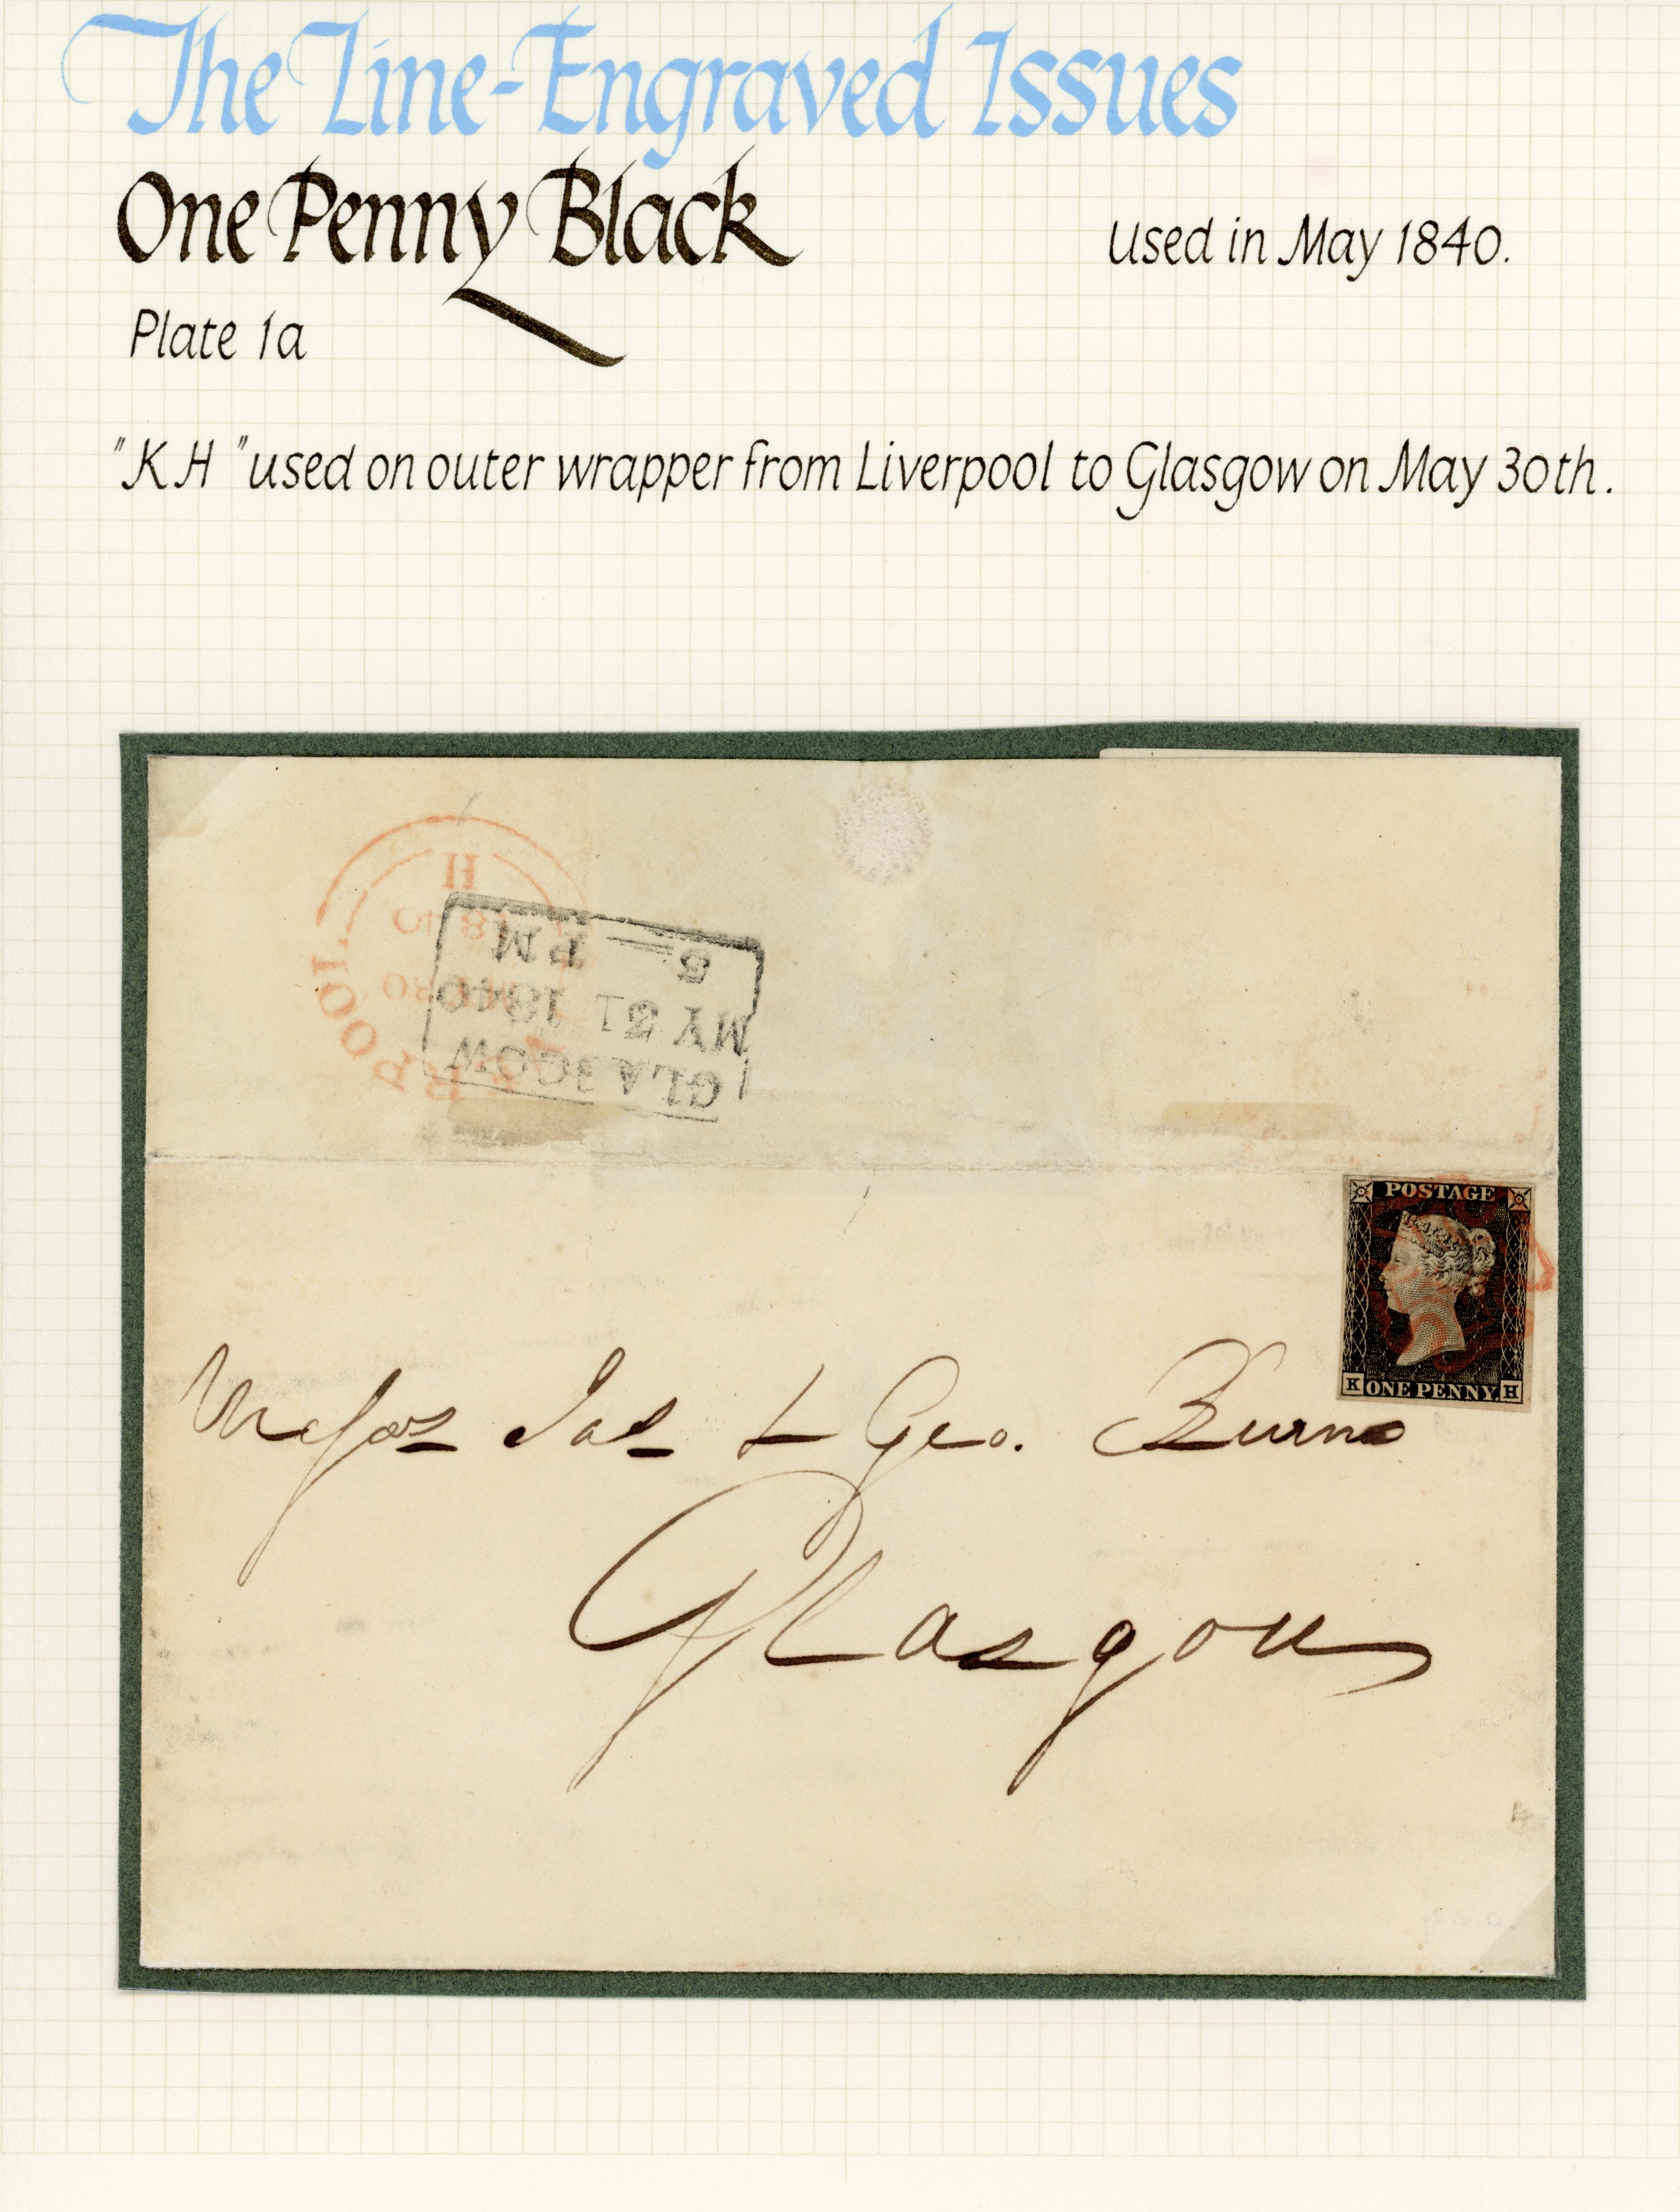 The Line-Engraved Issues
One Penny Black
used in May 1840.
Plate 1a
"KH" used on outer wrapper from Liverpool to Glasgow on May 30th.
H
1840
RPOOL
8 PM
MY 31 1840
GLASGOW
POSTAGE
K ONE PENNY. H
Messrs Jas & Geo. Burns
Glasgow